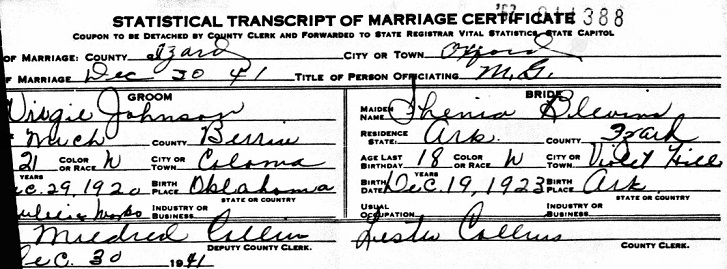 388
STATISTICAL TRANSCRIPT OF MARRIAGE CERTIFICATE
COUPON TO BE DETACHED BY COUNTY CLERK AND FORWARDED TO STATE REGISTRAR VITAL STATISTICS, STATE CAPITOL
OF MARRIAGE: COUNTY Izard CITY OR TOWN Oxford
OF MARRIAGE Dec 30 41 TITLE OF PERSON OFFICIATING M.G.
GROOM BRIDE
Virgie Johnson MAIDEN NAME Thenia Blevins
Mich COUNTY Berrien RESIDENCE STATE: Ark. COUNTY Izard
21 COLOR OR RACE W CITY OR TOWN Coloma AGE LAST BIRTHDAY 18 COLOR OR RACE W CITY OR TOWN Violet Hill
YEARS YEARS
ec. 29, 1920 BIRTH PLACE Oklahoma BIRTH DATE Dec. 19, 1923 BIRTH PLACE Ark.
STATE OR COUNTRY STATE OR COUNTRY
Works INDUSTRY OR BUSINESS USUAL OCCUPATION INDUSTRY OR BUSINESS
Mildred Collins DEPUTY COUNTY CLERK. Lester Collins COUNTY CLERK.
Dec. 30 1941